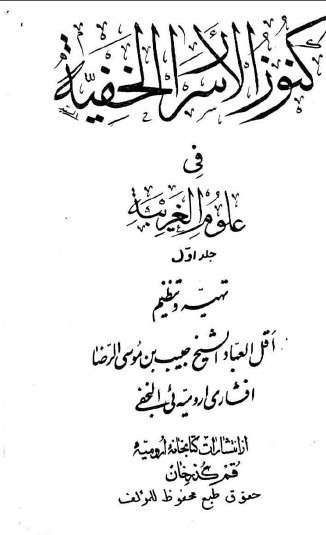 كنوز الأسرار الخفية
في
علوم الغريبة
جلد اول
تهیه و تنظیم
أقل العباد الشيخ حبيب بن موسى الرضا
افشاری ارومیه ئی النجفی
از انتشارات کتابخانهٔ ارومیه
قم گذرخان
حقوق طبع محفوظ للمؤلف